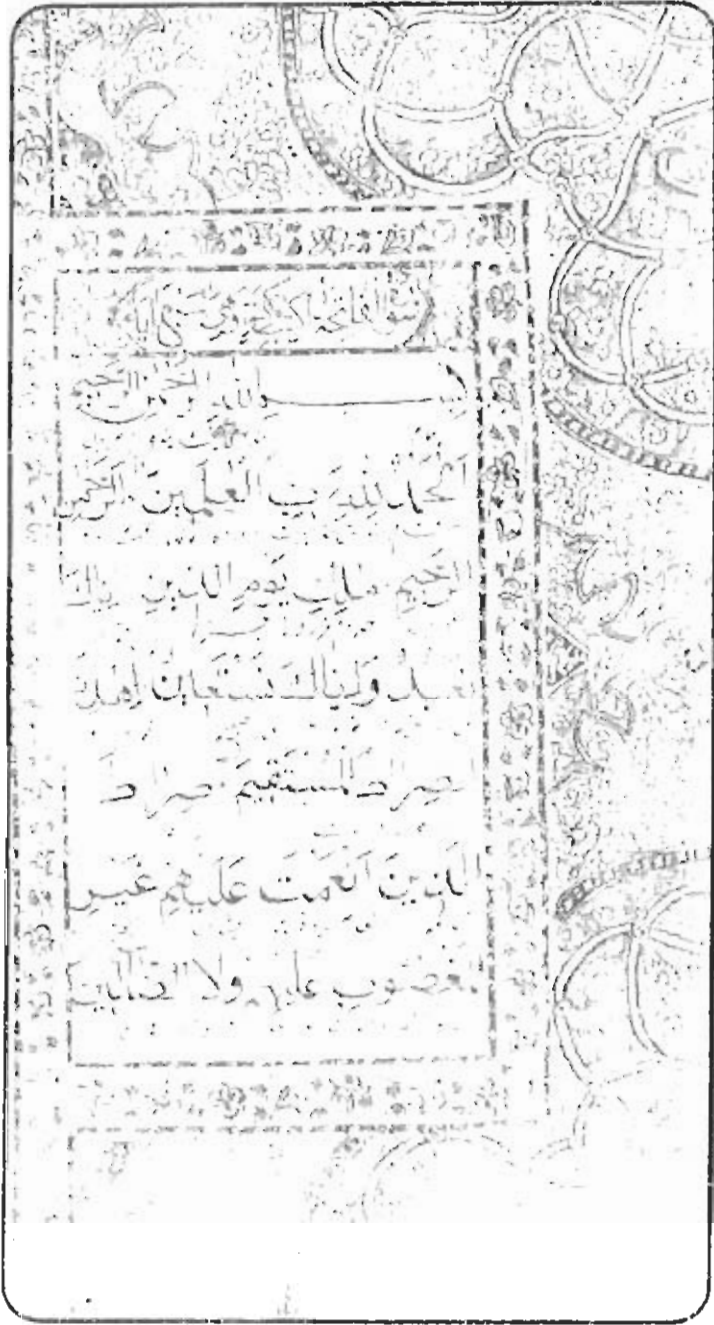 سورة فاتحة الكتاب وهي سبع آيات
بِسْمِ اللَّهِ الرَّحْمَنِ الرَّحِيمِ
اَلْحَمْدُ لِلَّهِ رَبِّ الْعَلَمِينَ الرَّحْمَنِ
الرَّحِيمِ مَلِكِ يَوْمِ الدِّينِ اِيَّاكَ
نَعْبُدُ وَاِيَّاكَ نَسْتَعِينُ اِهْدِنَا
الصِرَاطَ الْمُسْتَقِيمَ صِرَاطَ
الَّذِينَ اَنْعَمْتَ عَلَيْهِمْ غَيْرِ
الْمَغْضُوبِ عَلَيْهِمْ وَلَا الضَّآلِّينَ